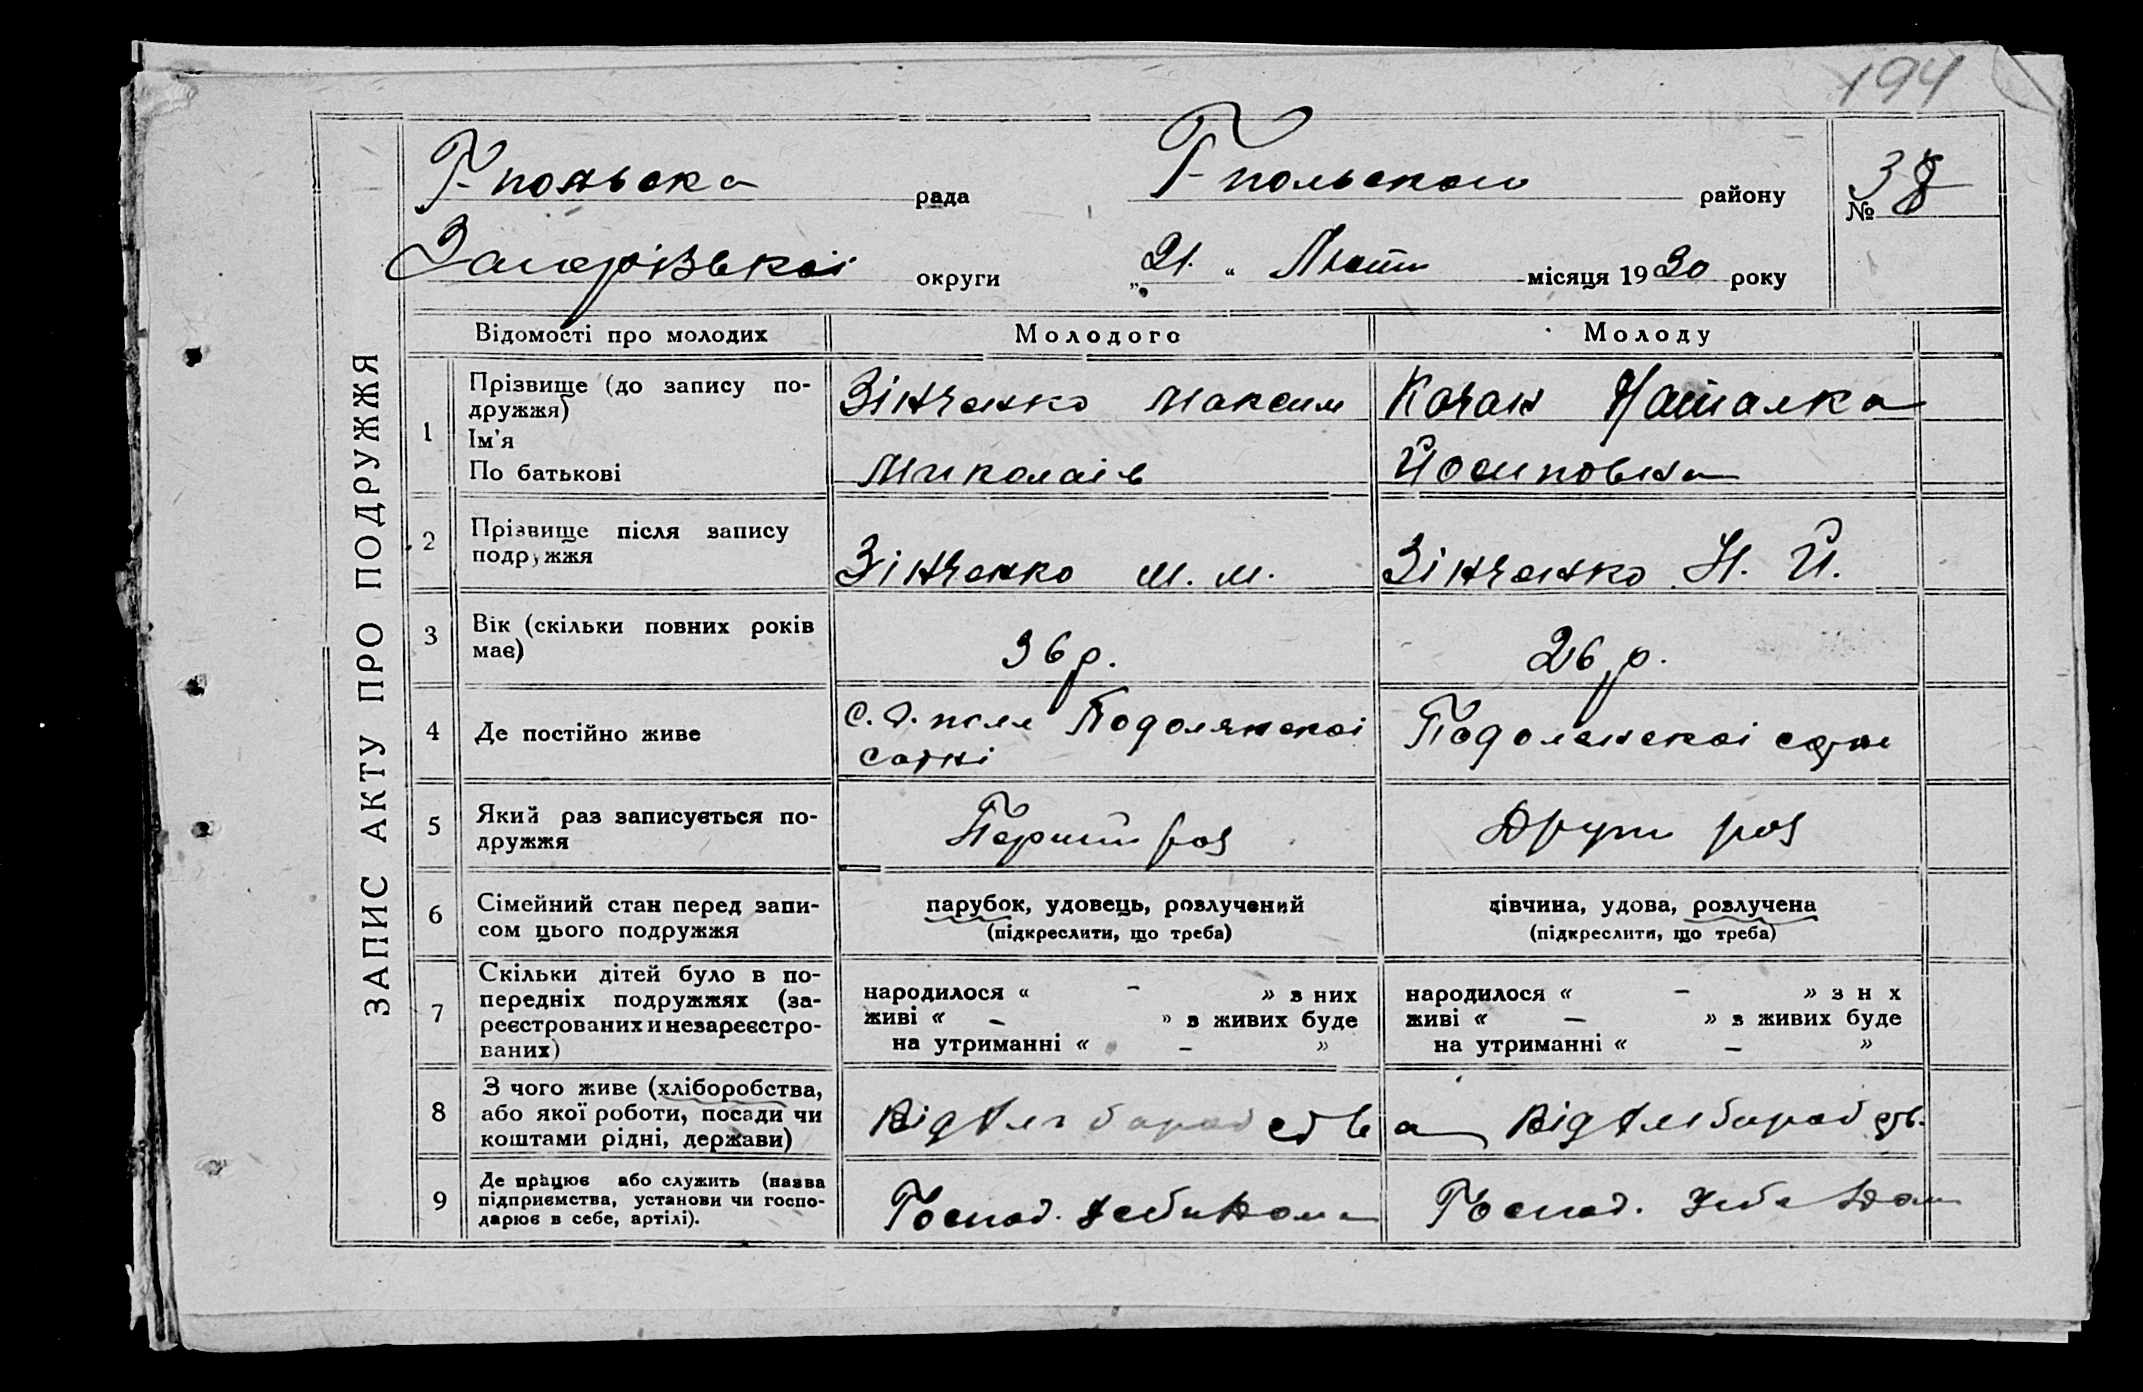 194
Г-польська рада Г-польського району № 38
Запорізької округи „21" Лютого місяця 1930 року
ЗАПИС АКТУ ПРО ПОДРУЖЖЯ
Відомості про молодих Молодого Молоду
1 Прізвище (до запису по-
дружжя)
Ім'я
По батькові
Зінченко Максим
Миколаів
Качан Наталка
Йосиповна
2 Прізвище після запису
подружжя
Зінченко М. М.
Зінченко Н. Й.
3 Вік (скільки повних років
має)
36 р.
26 р.
4 Де постійно живе
с. Г. поле Подолянскоі
сотні
Подоленскоі сотні
5 Який раз записується по-
дружжя
Перший раз
Други раз
6 Сімейний стан перед запи-
сом цього подружжя
парубок, удовець, розлучений
(підкреслити, що треба)
дівчина, удова, розлучена
(підкреслити, що треба)
7 Скільки дітей було в по-
передніх подружжях (за-
реєстрованих и незареєстро-
ваних)
народилося « - » з них
живі « - » в живих буде
на утриманні « - »
народилося « - » з н х
живі « - » в живих буде
на утриманні « - »
8 З чого живе (хліборобства,
або якої роботи, посади чи
коштами рідні, держави)
Від хліборобства
Від хліборобств.
9 Де працює або служить (назва
підприємства, установи чи госпо-
дарює в себе, артілі).
Господ. у себе дома
Господ. у себе дома